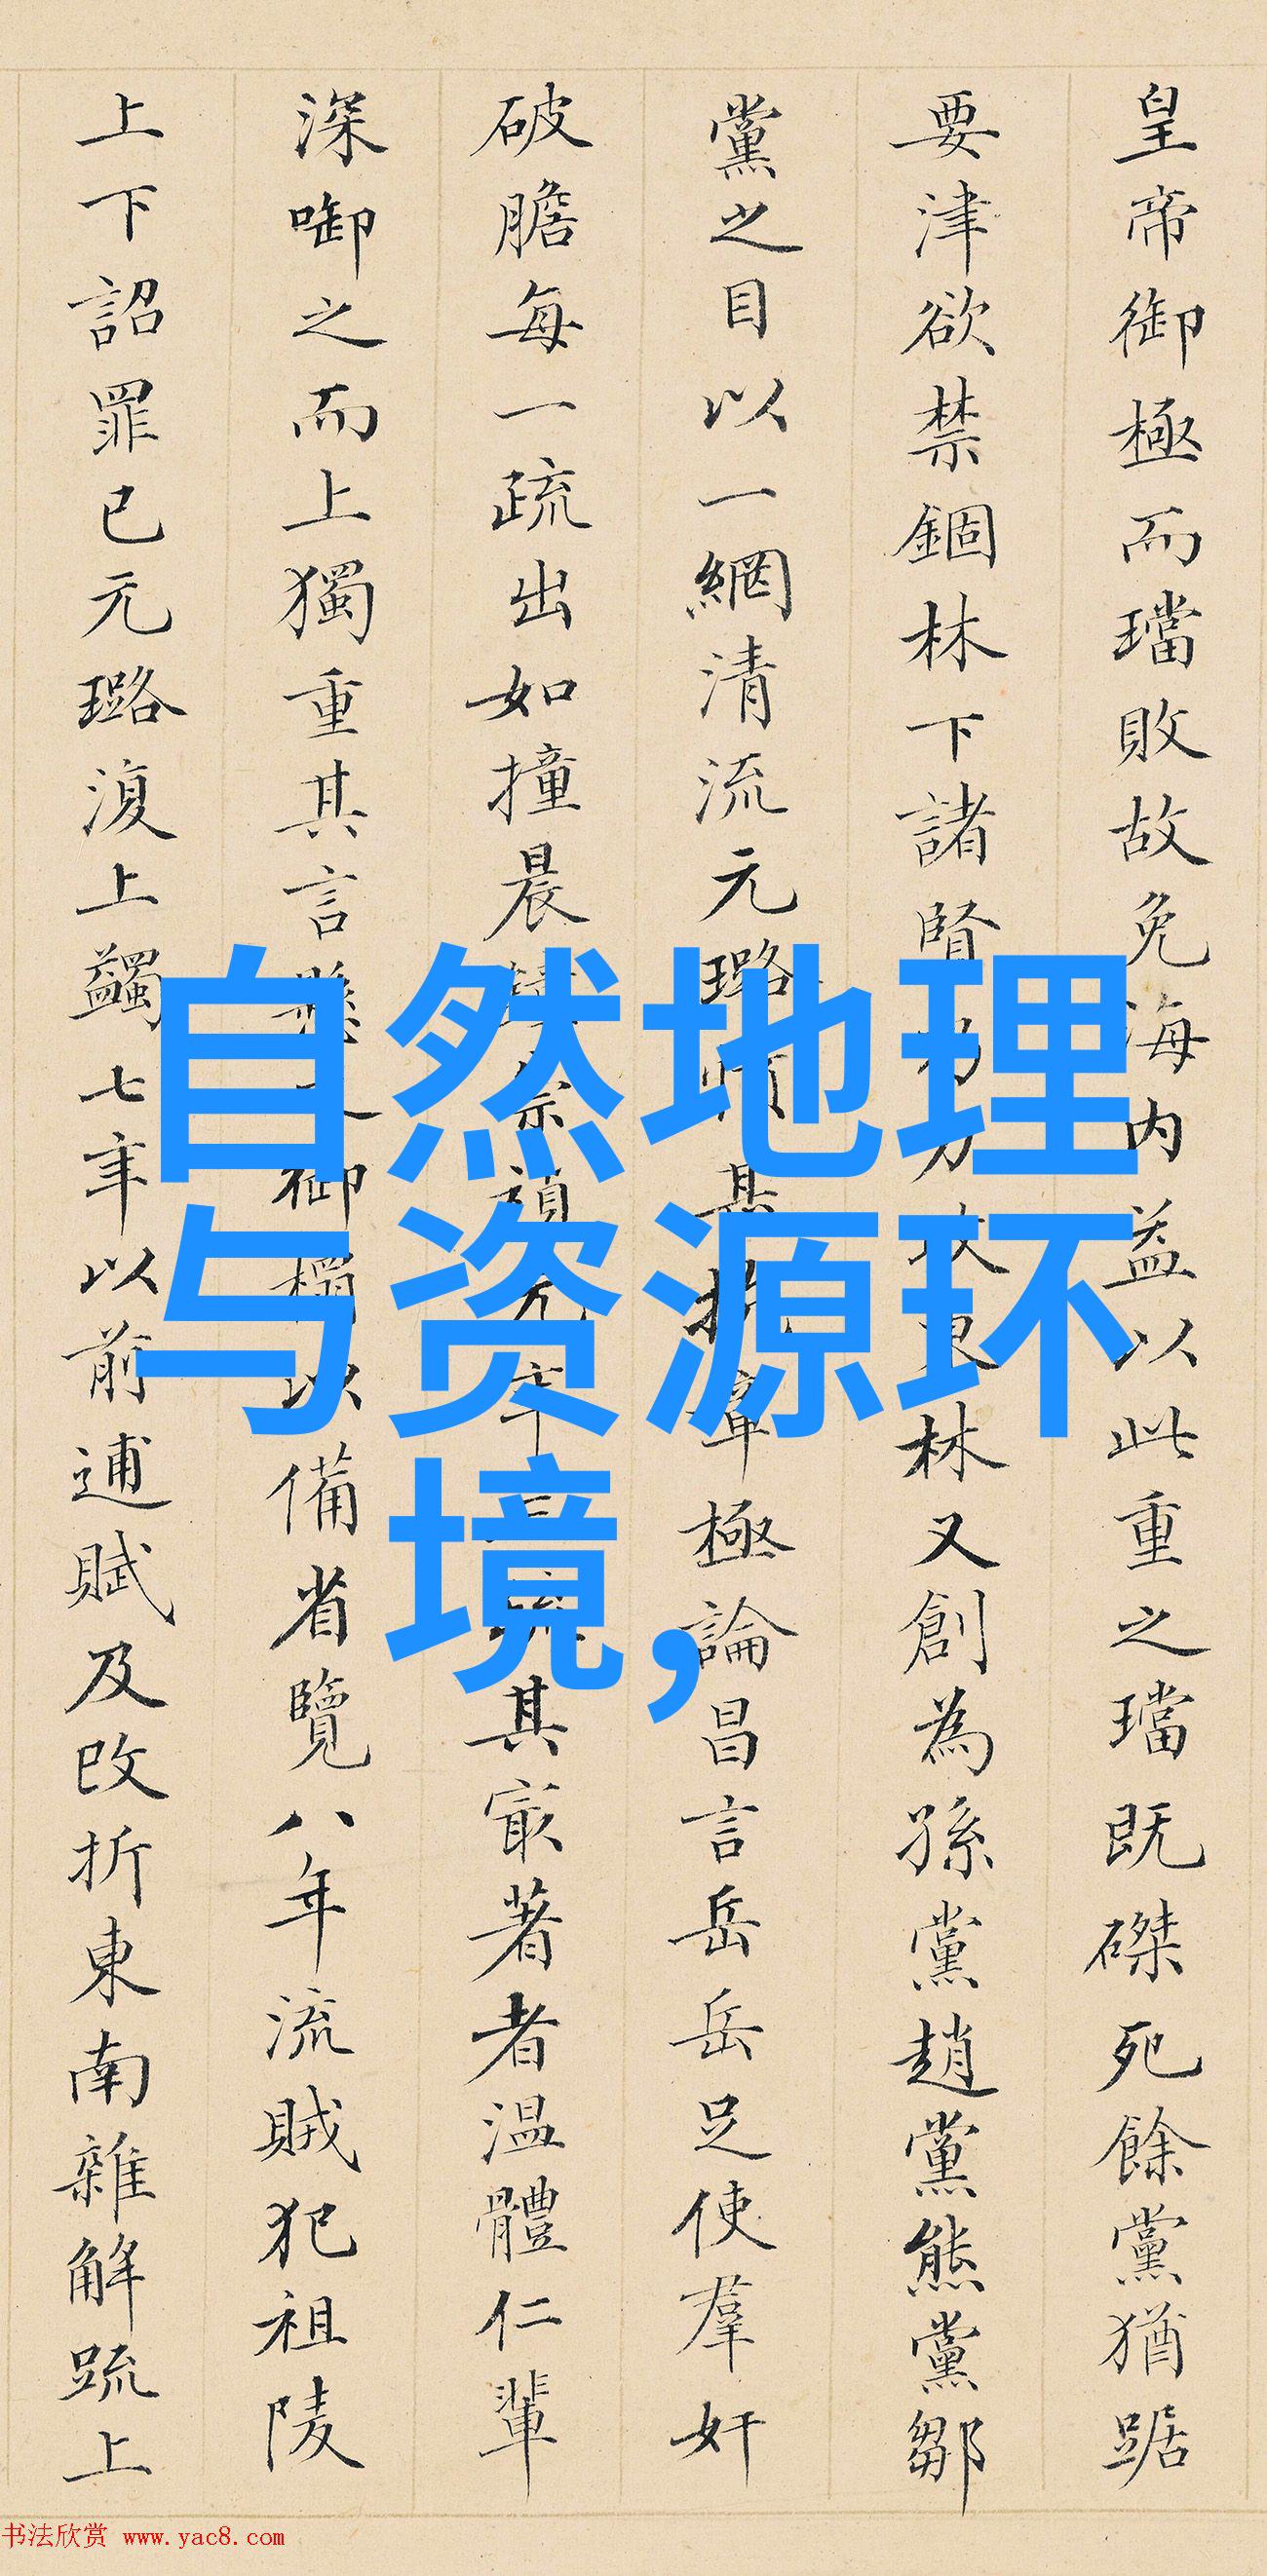 自然地理
与资源环
境,
皇帝御極而璫敗故免海内益以此重之璫既磔死餘黨猶踞
要津欲禁錮林下諸賢力攻林又創為孫黨趙黨熊黨鄒
黨之目以一網清流元璐章極論昌言岳岳足使羣奸
破膽每一疏出如撞晨其寂著者温體仁輩
深啣之而上獨重其言御榻以備省覽八年流賊犯祖陵
上下詔罪已元璐復上蠲七年以前逋賦及改折東南雜解疏上
书法欣赏 www.yac8.com